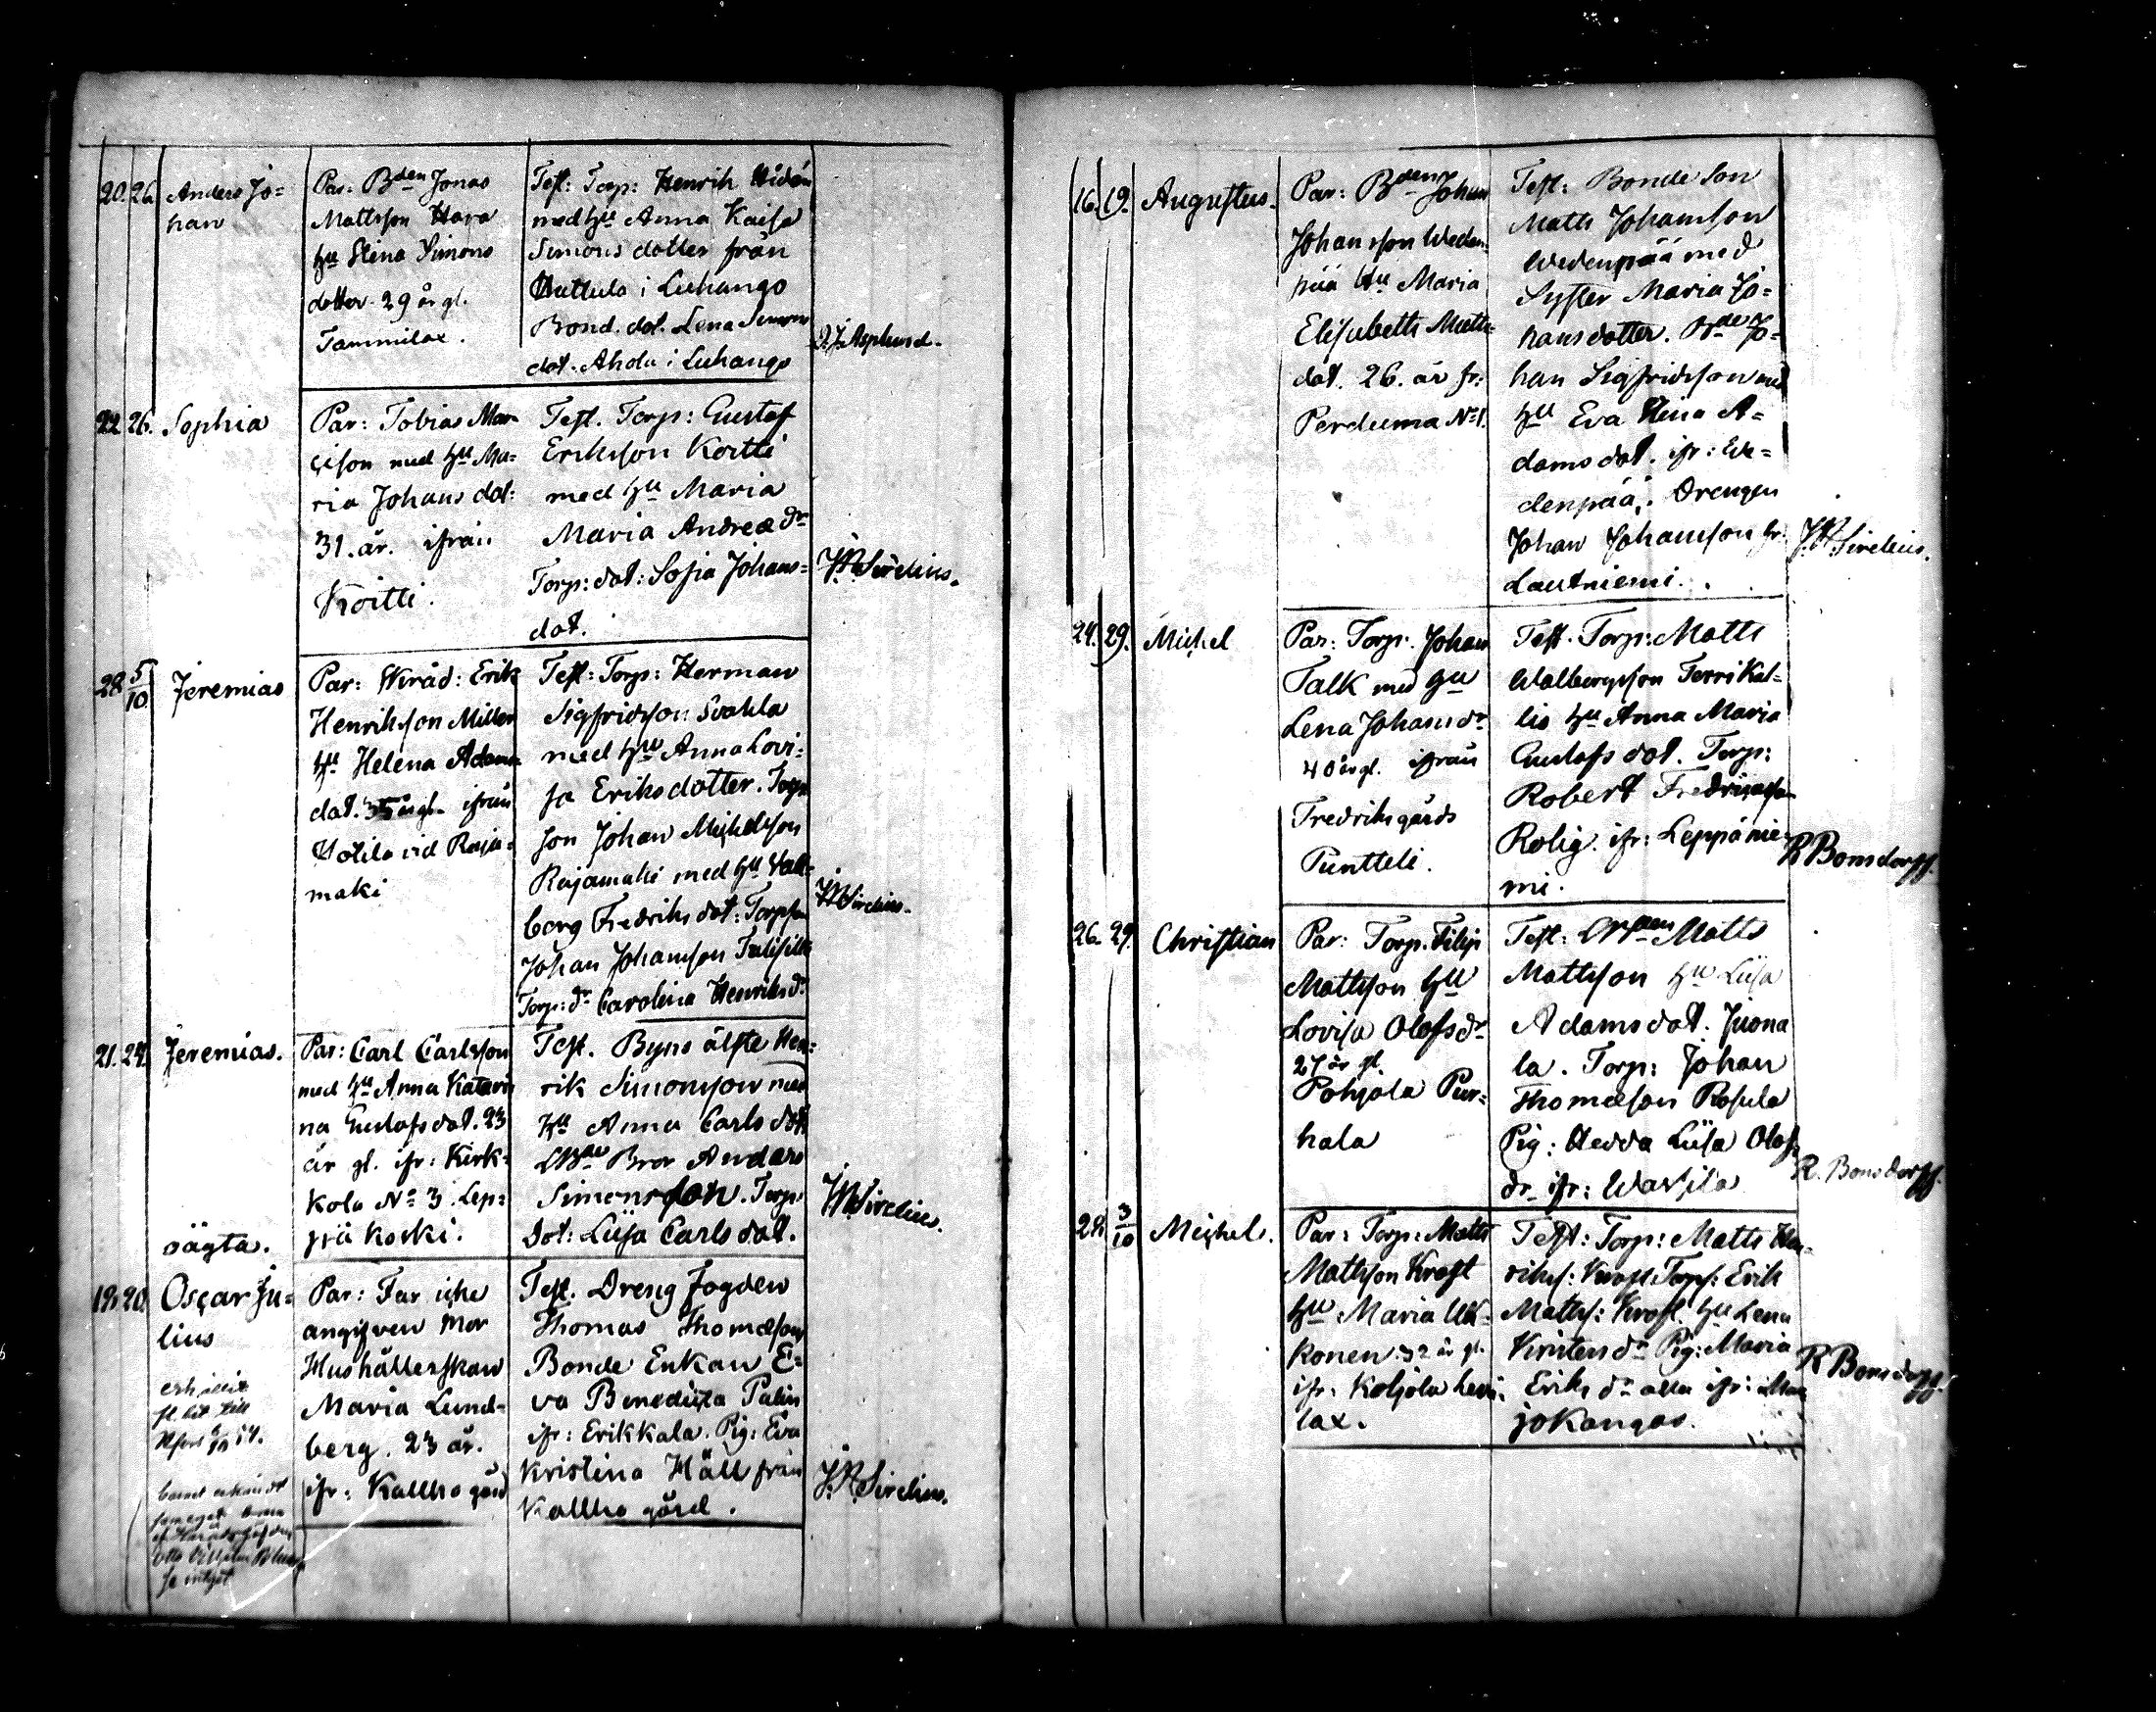 20. 26. Anders Jo=
han
Par: Bden Jonas
Mattsson Hara
hu Stina Simons
dotter 29 år gl.
Tammilax.
Test: Torp: Henrik Hidén
med hu Anna Kaisa
Simons dotter från
Hattula i Luhango
Bond. dot. Lena Simons
dot. Ahola i Luhango
Asplund.
22. 26. Sophia
Par: Tobias Mar=
cison med hu Ma=
ria Johans dot:
31. år. ifrån
Koitti.
Test. Torp: Gustaf
Eriksson Koitti
med hu Maria
Maria Andreæ dr
Torp: dot: Sofia Johans=
dot.
Sirelius.
28. 5/10 Jeremias
Par: Erik
Henriksson Miller
hu Helena Adams
dot. 35 år gl. ifrån
Hotila vid Raja=
maki
Test: Torp: Herman
Sigfridsson Svahla
med hu Anna Lovi=
sa Eriksdotter. Torp
son Johan Michelsson
Rajamaki med hu Vall=
borg Fredriks dot: Torpson
Johan Johansson
Torp: dr Carolina Henriks dr
Sirelius.
21. 24. Jeremias.
Par: Carl Carlsson
med hu Anna Katari
na Gustafs dot. 23
år gl. ifr: Kirk=
kola No 3. Lep=
pä koski.
oägta.
Test. Byns älste Hen=
rik Simonsson med
hu Anna Carls dot.
Bror Anders
Simonsson. Torp:
dot: Lisa Carls dot.
Sirelius.
19. 20. Oscar Ju=
lius
Par: Far icke
angifven Mor
Hushållerskan
Maria Lund=
berg. 23 år.
ifr: Kallho gård
Test. Dreng Fogden
Thomas Thomæson
Bonde Enkan E=
va Benedicta Palin
ifr: Erikkala. Pig: Eva
Kristina Häll från
Kallho gård.
J. A. Sirelius.
erhållit
till
barnet erkändt
Otto Vilhelm
16. 19. Augustus.
Par: Bden Johan
Johansson Weden=
pää hu Maria
Elisabeth Matts=
dot. 26. år fr:
Perduma No 1.
Test: Bonde Son
Matts Johansson
Wedenpää med
Syster Maria Jo=
hans dotter. Bde Jo=
han Sigfridsson med
hu Eva Stina A=
dams dot. ifr: We=
denpää. Drengen
Johan Johansson fr:
Lautniemi.
J. A. Sirelius.
24. 29. Michel
Par: Torp. Johan
Talk med hu
Lena Johans dr
40 år gl. ifrån
Fredriksgårds
Puntteli.
Test. Torp: Matts
Walborgsson Terri Kal=
lio hu Anna Maria
Gustafs dot. Torp:
Robert Fredricsson
Rolig. ifr: Leppänie=
mi.
R Bonsdorff.
26. 29. Christian
Par: Torp. Filip
Mattsson hu
Lovisa Olofs dr
27 år gl.
Pohjola Pur=
hala
Test: Matts
Mattsson hu Liisa
Adams dot. Juona
la. Torp: Johan
Thomæson Rosula
Pig: Hedda Liisa Olofs
dr ifr: Warsila
R. Bonsdorff.
28. 3/10 Michel.
Par: Torp: Matts
Mattsson Kroft
hu Maria Uk=
konen. 32 år gl.
ifr: Koljola Levi=
lax.
Test: Torp: Matts Hen=
riks: Kroft. Torps: Erik
Matts: Kroft. hu Lena
Kristers dr Pig: Maria
Eriks dr alla ifr: Mar
jokangas.
R Bonsdorff.